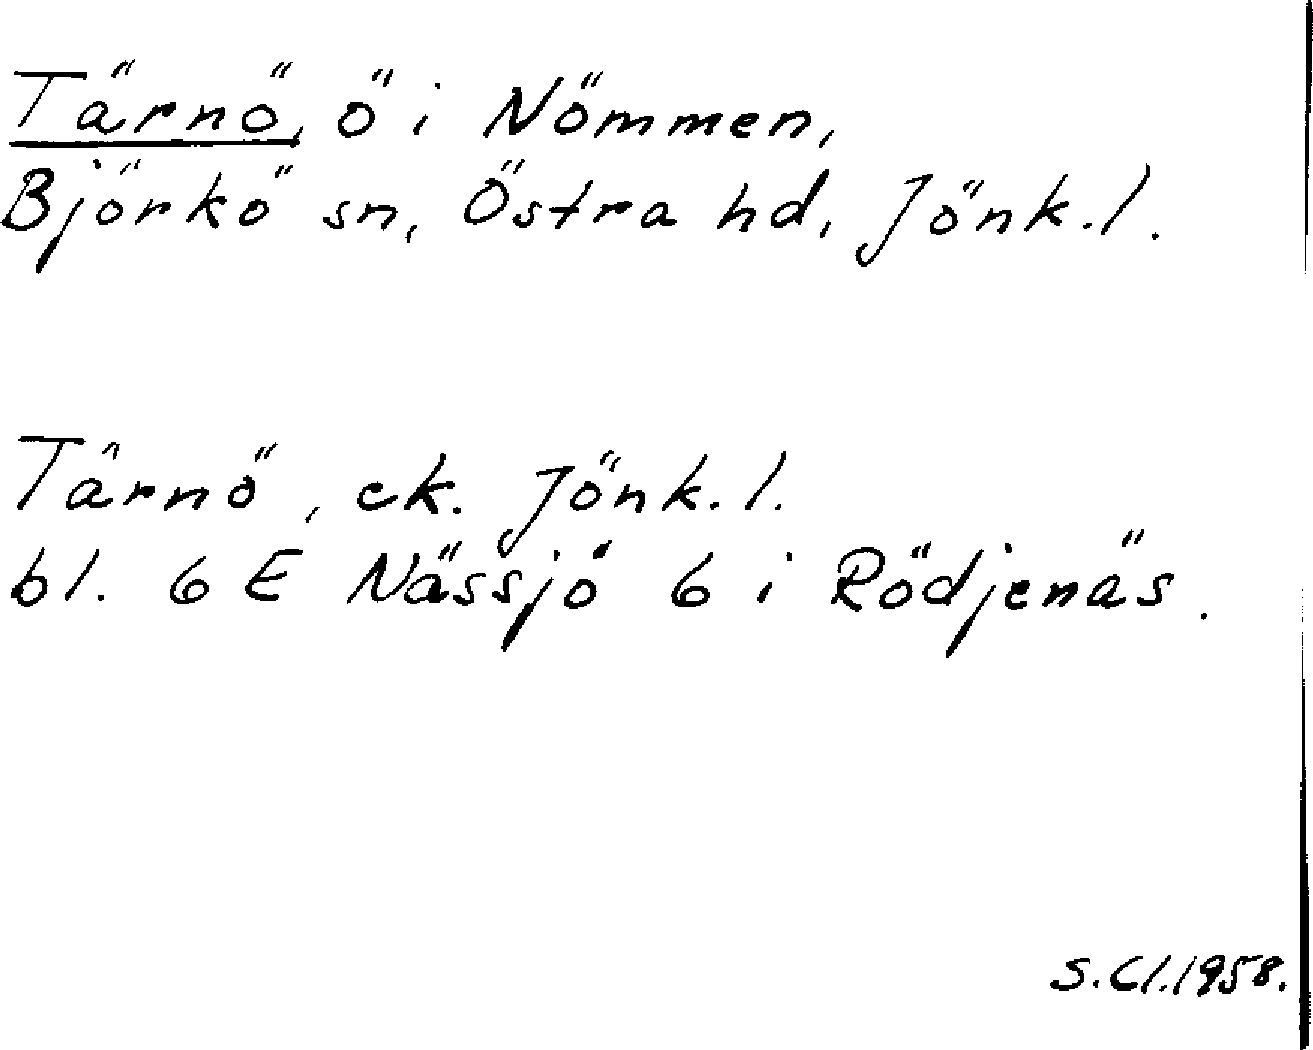 Tärnö, ö i Nömmen,
Björkö sn, Östra hd, Jönk.l.
Tärnö, ek. Jönk.l.
bl. 6 E Nässjö 6 i Rödjenäs.
S.Cl.1958.